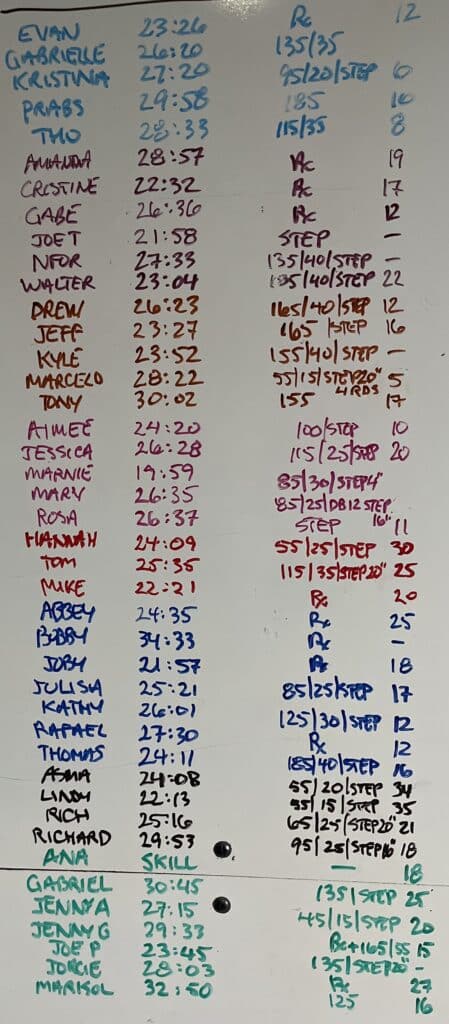 EVAN 23:26 Rx 12
GABRIELLE 26:20 135/35
KRISTINA 27:20 95/20/STEP 6
PRABS 29:58 185 10
THO 28:33 115/35 8
AMANDA 28:57 Rx 19
CRISTINE 22:32 Rx 17
GABE 26:36 Rx 12
JOE T 21:58 STEP —
NFOR 27:33 135/40/STEP —
WALTER 23:04 185/40/STEP 22
DREW 26:23 165/40/STEP 12
JEFF 23:27 165 /STEP 16
KYLE 23:52 155/40/STEP —
MARCELO 28:22 55/15/STEP20" 5
TONY 30:02 155 4RDS 17
AIMEE 24:20 100/STEP 10
JESSICA 26:28 115/25/STEP 20
MARNIE 19:59 85/30/STEP4"
MARY 26:35 85/25/DB12 STEP
ROSA 26:37 STEP 16" 11
HANNAH 24:09 55/25/STEP 30
TOM 25:35 115/35/STEP20" 25
MIKE 22:21 Rx 20
ABBEY 24:35 Rx 25
BOBBY 34:33 Rx —
JOBY 21:57 Rx 18
JULISIA 25:21 85/25/STEP 17
KATHY 26:01 125/30/STEP 12
RAFAEL 27:30 Rx 12
THOMAS 24:11 185/40/STEP 16
ASMA 24:08 55/20/STEP 34
LINDY 22:13 55/15/STEP 35
RICH 25:16 65/25/STEP20" 21
RICHARD 29:53 95/25/STEP16" 18
ANA SKILL — 18
GABRIEL 30:45 135/STEP 25
JENNY A 27:15 45/15/STEP 20
JENNY G 29:33
JOE P 23:45 Rx+165/55 15
JORGIE 28:03 135/STEP20" —
MARISOL 32:50 Rx 27
125 16